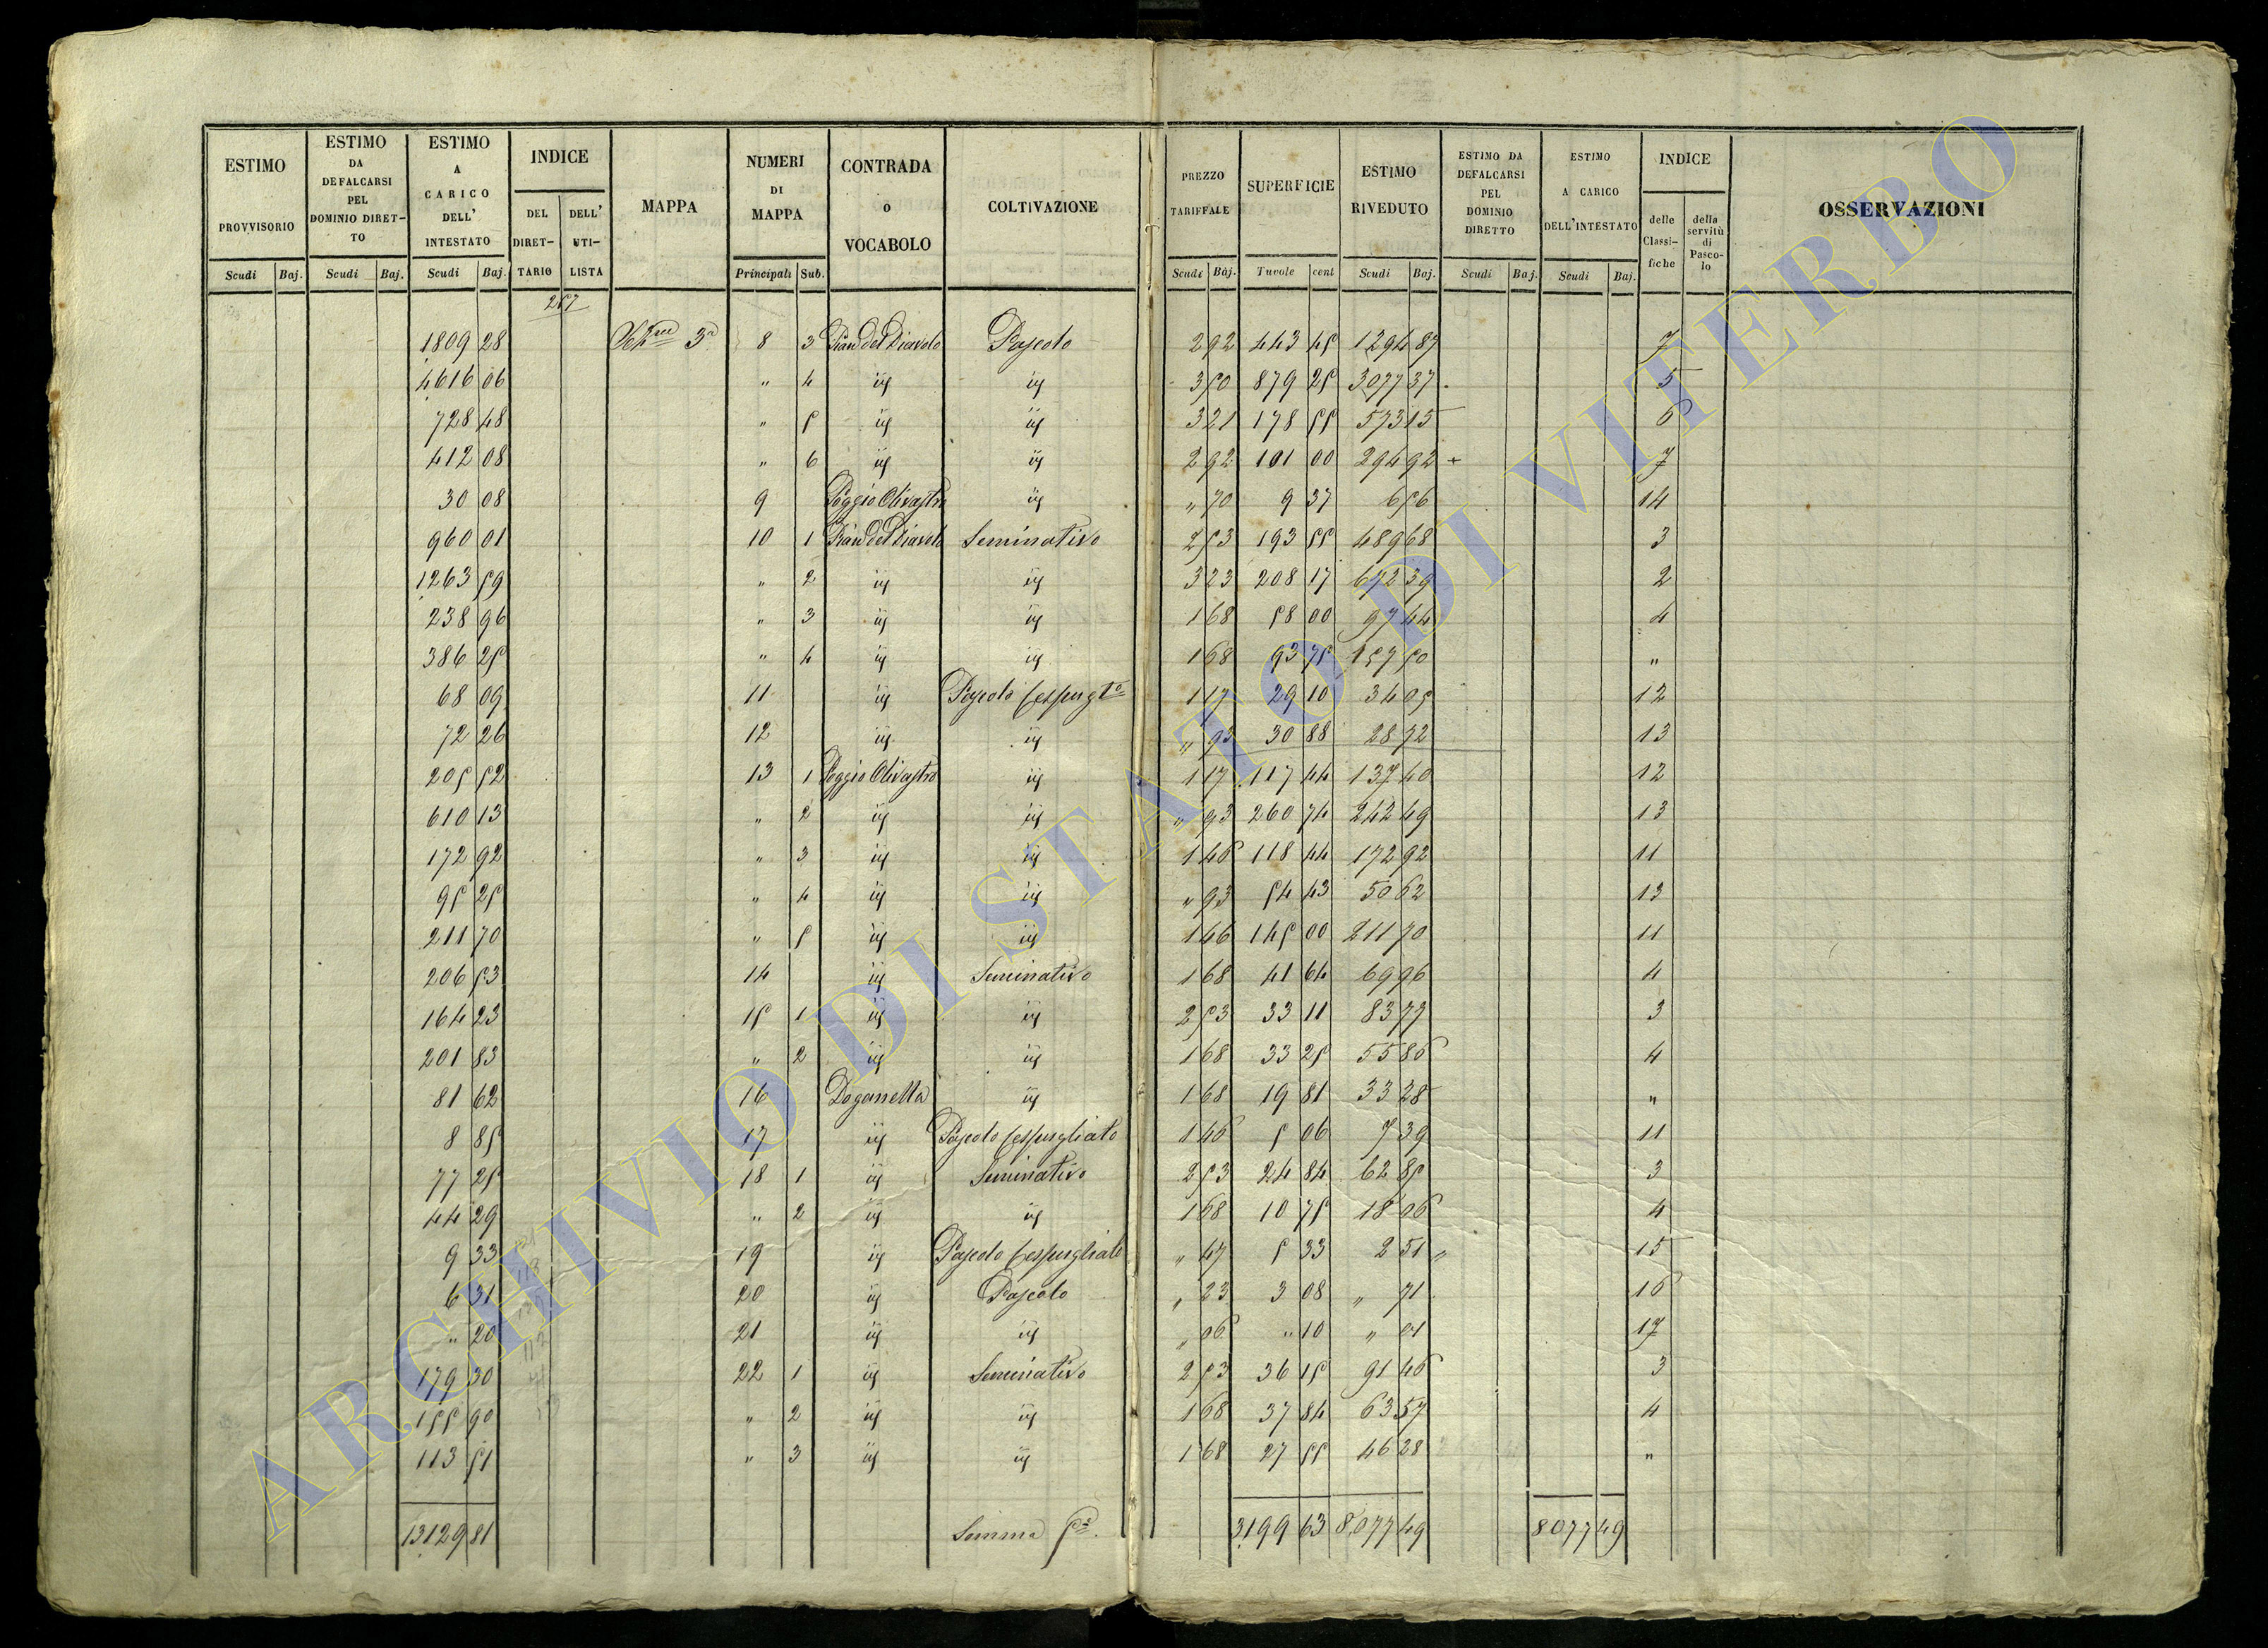 ESTIMO PROVVISORIO Scudi Baj.
ESTIMO DA DEFALCARSI PEL DOMINIO DIRETTO Scudi Baj.
ESTIMO A CARICO DELL' INTESTATO Scudi Baj.
INDICE DEL DIRETTARIO DELL' UTILISTA
MAPPA
NUMERI DI MAPPA Principali Sub.
CONTRADA o VOCABOLO
COLTIVAZIONE
PREZZO TARIFFALE Scudi Baj.
SUPERFICIE Tavole cent
ESTIMO RIVEDUTO Scudi Baj.
ESTIMO DA DEFALCARSI PEL DOMINIO DIRETTO Scudi Baj.
ESTIMO A CARICO DELL'INTESTATO Scudi Baj.
INDICE delle Classifiche della servitù di Pascolo
OSSERVAZIONI
257
1809 28 3a 8 3 Pian del Diavolo Pascolo 2 92 443 45 1294 87 7
4616 06 " 4 iij iij 3 50 879 25 3077 37 5
728 48 " 5 iij iij 3 21 178 55 573 15 6
412 08 " 6 iij iij 2 92 101 00 294 92 + 7
30 08 9 Poggio Olivastro iij " 70 9 37 6 56 14
960 01 10 1 Pian del Diavolo Seminativo 2 53 193 55 489 68 3
1263 59 " 2 iij iij 3 23 208 17 672 39 2
238 96 " 3 iij iij 1 68 58 00 97 44 4
386 25 " 4 iij iij 1 68 93 75 157 50 "
68 09 11 iij Pascolo cespugto 1 17 29 10 34 05 12
72 26 12 iij iij " 93 30 88 28 72 13
205 52 13 1 Poggio Olivastro iij 1 17 117 44 137 40 12
610 13 " 2 iij iij " 93 260 74 242 49 13
172 92 " 3 iij iij 1 46 118 44 172 92 11
95 25 " 4 iij iij " 93 54 43 50 62 13
211 70 " 5 iij iij 1 46 145 00 211 70 11
206 53 14 iij Seminativo 1 68 41 64 69 96 4
164 23 15 1 iij iij 2 53 33 11 83 77 3
201 83 " 2 iij iij 1 68 33 25 55 86 4
81 62 16 Doganella iij 1 68 19 81 33 28 "
8 85 17 iij Pascolo cespugliato 1 46 5 06 7 39 11
77 25 18 1 iij Seminativo 2 53 24 84 62 85 3
44 29 " 2 iij iij 1 68 10 75 18 06 4
9 33 19 iij Pascolo cespugliato " 47 5 33 2 51 " 15
6 31 20 iij Pascolo " 23 3 08 " 71 16
" 20 21 iij iij " 06 " 10 " 01 17
179 30 22 1 iij Seminativo 2 53 36 15 91 46 3
155 90 " 2 iij iij 1 68 37 84 63 57 4
113 51 " 3 iij iij 1 68 27 55 46 28 "
13129 81 Somma 3199 63 8077 49 8077 49
ARCHIVIO DI STATO DI VITERBO